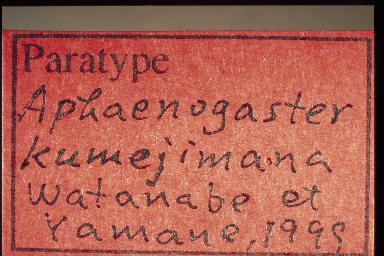 Paratype
Aphaenogaster
kumejimana
Watanabe et
Yamane, 1999